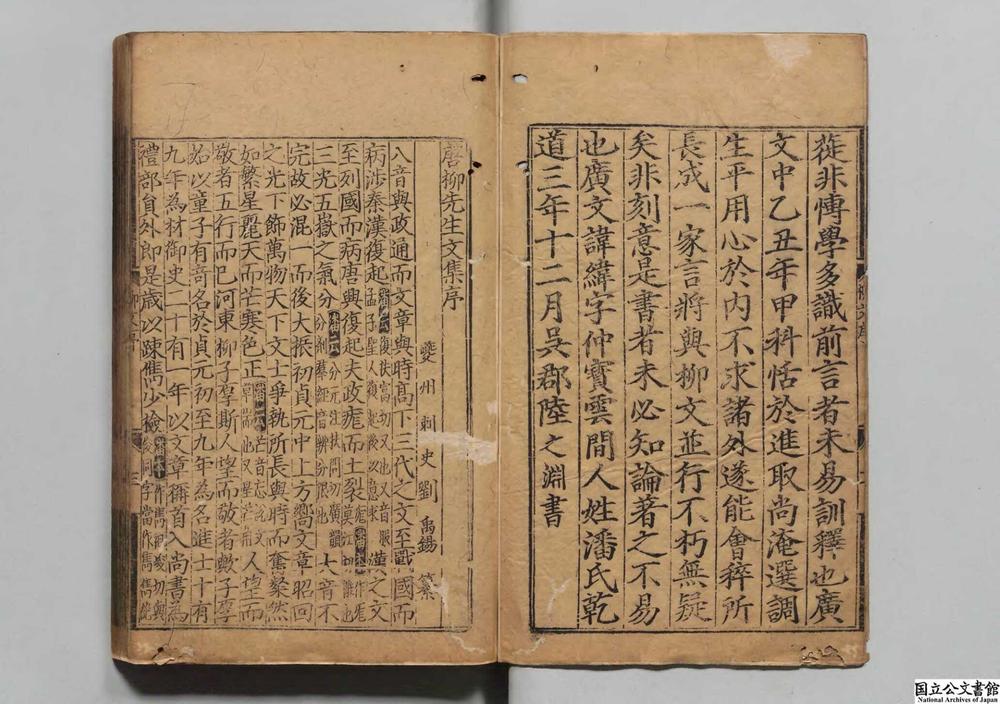 蓰非博學多識前言者未易訓釋也廣
文中乙丑年甲科恬於進取尚淹選調
生平用心於內不求諸外遂能會稡所
長成一家言將與柳文並行不朽無疑
矣非刻意是書者未必知論著之不易
也廣文諱緯字仲寶雲間人姓潘氏乾
道三年十二月吳郡陸之淵書
唐柳先生文集序
夔州刺史劉禹錫纂
八音與政通而文章與時高下三代之文至戰國而
病涉秦漢復起
漢之文
至列國而病唐興復起夫政厖而土裂
三光五嶽之氣分
大音不
完故必混一而後大振初貞元中上方嚮文章昭回
之光下飾萬物天下文士爭執所長與時而奮粲然
如繁星麗天而芒寒色正
人望而
敬者五行而已河東柳子厚斯人望而敬者歟子厚
始以童子有奇名於貞元初至九年為名進士十有
九年為材御史二十有一年以文章稱首入尚書為
禮部員外郎是歲以踈雋少檢
国立公文書館
National Archives of Japan